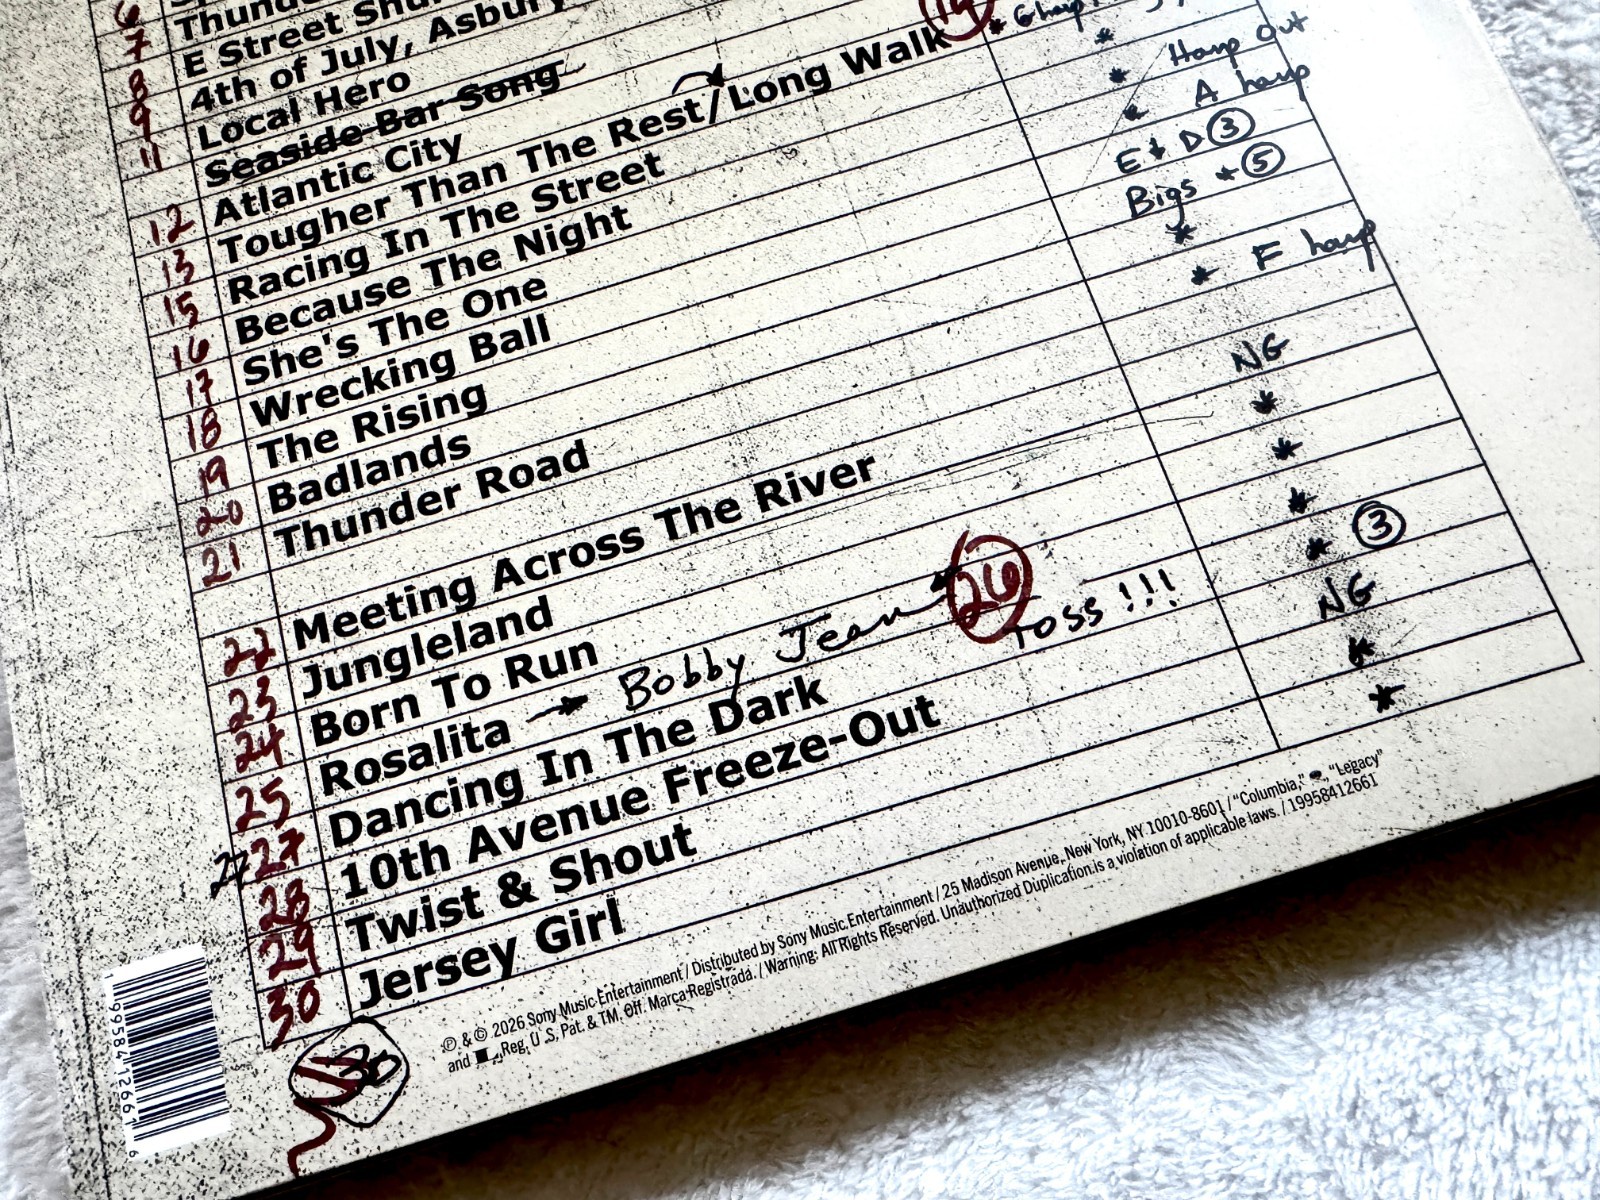 6
7 Thunde
8 E Street Shu
9 4th of July, Asbury
Local Hero
11 Seaside Bar Song
12 Atlantic City
13 Tougher Than The Rest/Long Walk 14
15 Racing In The Street
16 Because The Night
17 She's The One
18 Wrecking Ball
19 The Rising
20 Badlands
21 Thunder Road
22 Meeting Across The River
23 Jungleland
24 Born To Run
25 Rosalita → Bobby Jean 26
27 27 Dancing In The Dark Toss !!!
28 10th Avenue Freeze-Out
29 Twist & Shout
30 Jersey Girl
* G harp
*
* Harp Out
* A harp
E + D 3
Bigs * 5
*
* F harp
NG
*
*
*
* 3
NG
*
*
℗ & © 2026 Sony Music Entertainment / Distributed by Sony Music Entertainment / 25 Madison Avenue, New York, NY 10010-8601 / "Columbia," "Legacy"
and Reg. U.S. Pat. & TM. Off. Marca Registrada. / Warning: All Rights Reserved. Unauthorized Duplication is a violation of applicable laws. / 19958412661
1 99584 12661 6